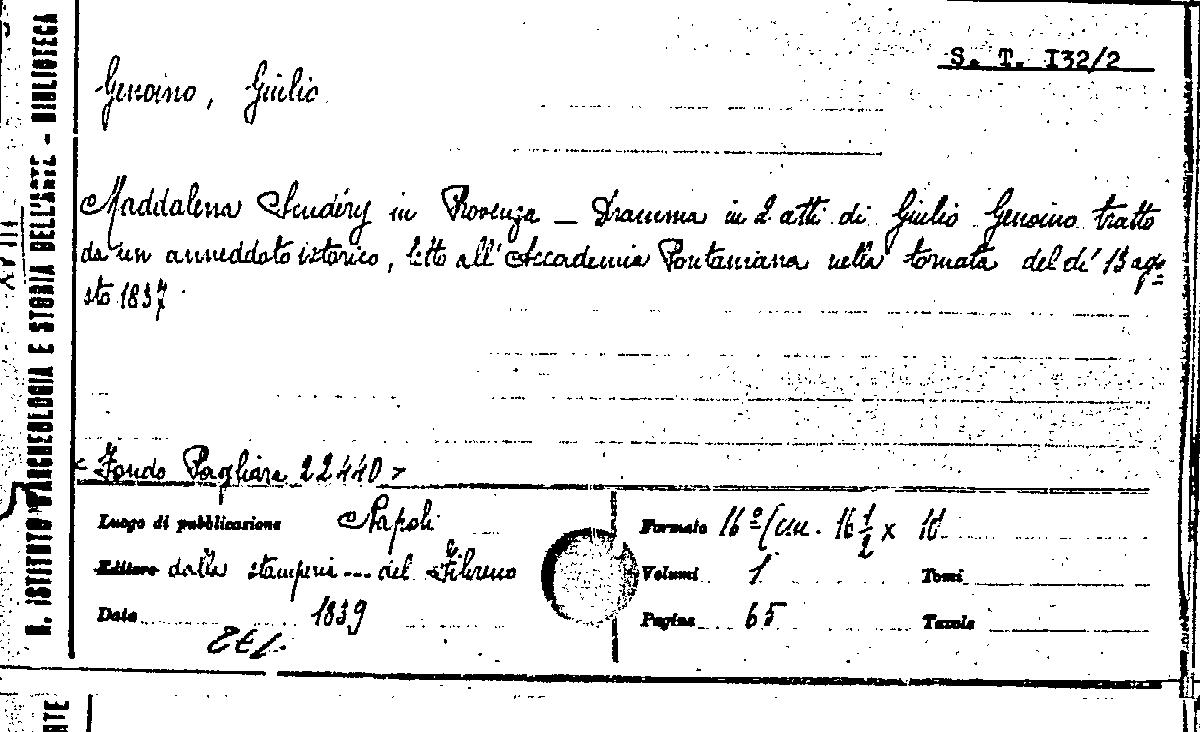 S. T. I32/2
Genoino, Giulio
Maddalena Scudéry in Provenza — Dramma in 2 atti di Giulio Genoino tratto
da un anneddoto istorico, letto all'Accademia Pontaniana nella tornata del dí 13 ago=
sto 1837.
< Fondo Pagliara 22440 >
Luogo di pubblicazione Napoli
Editore dalla stamperia... del Fibreno
Data 1839
Formato 16º (cm. 16 1/2 x
Volumi 1
Tomi
Pagine 65
Tavole
R. ISTITUTO D'ARCHEOLOGIA E STORIA DELL'ARTE - BIBLIOTECA